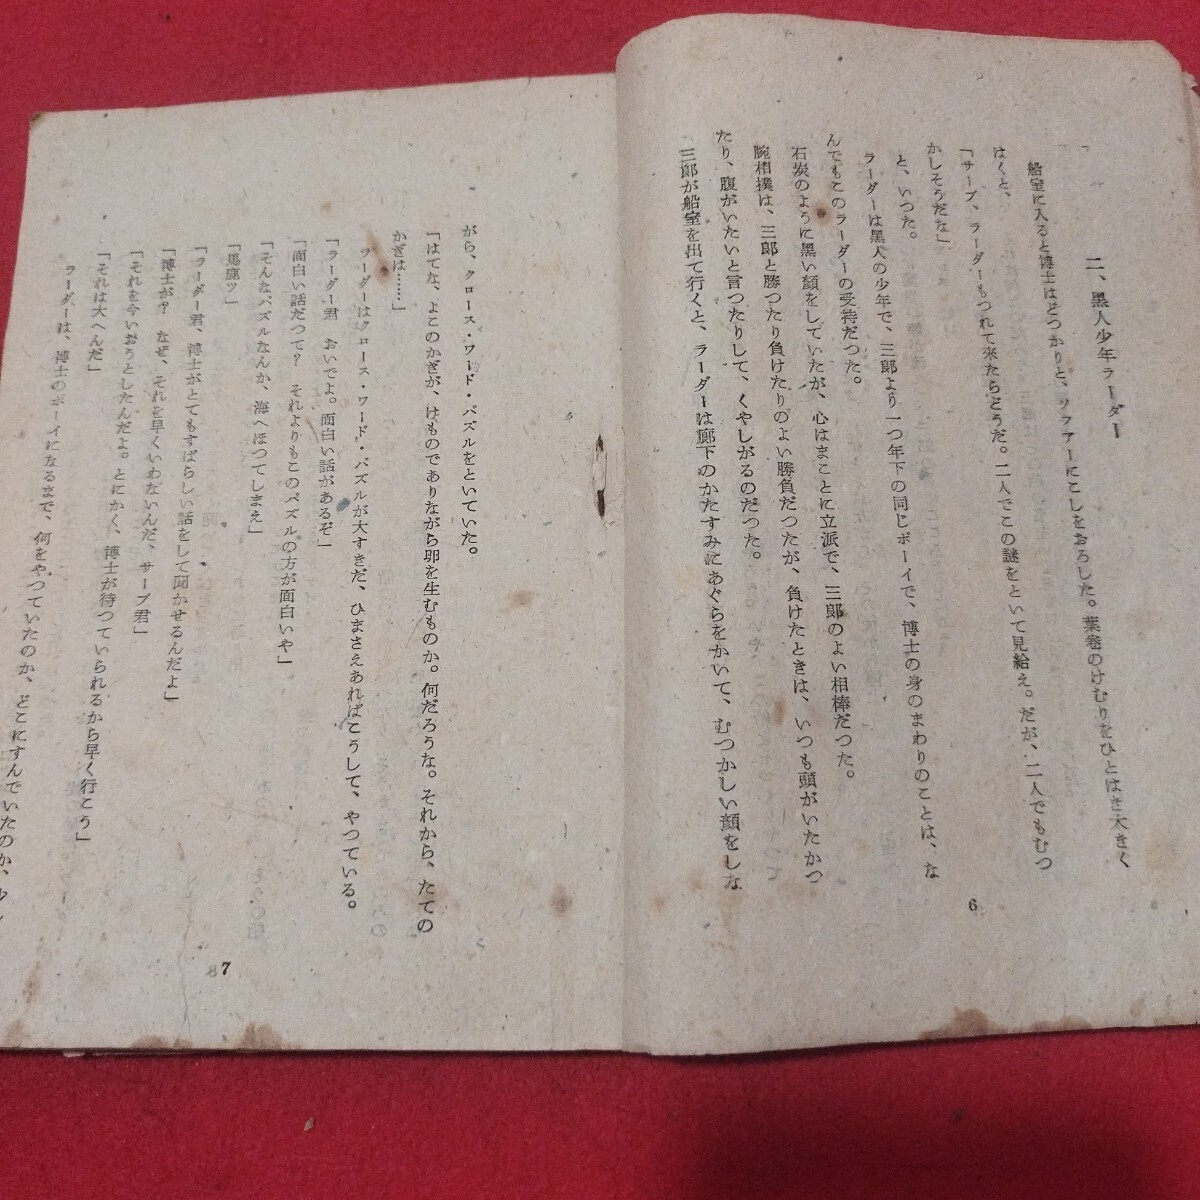 二、黒人少年ラーダー
船室に入ると博士はどつかりと、ソフアーにこしをおろした。葉巻のけむりをひとはき大きく
はくと、
「サーブ、ラーダーもつれて来たらどうだ。二人でこの謎をといて見給え。だが、二人でもむつ
かしそうだな」
と、いつた。
ラーダーは黒人の少年で、三郎より一つ年下の同じボーイで、博士の身のまわりのことは、な
んでもこのラーダーの受持だつた。
石炭のように黒い顔をしていたが、心はまことに立派で、三郎のよい相棒だつた。
腕相撲は、三郎と勝つたり負けたりのよい勝負だつたが、負けたときは、いつも頭がいたかつ
たり、腹がいたいと言つたりして、くやしがるのだつた。
三郎が船室を出て行くと、ラーダーは廊下のかたすみにあぐらをかいて、むつかしい顔をしな
6
がら、クロース・ワード・パズルをといていた。
「はてな、よこのかぎが、けものでありながら卵を生むものか。何だろうな。それから、たての
かぎは……」
ラーダーはクロース・ワード・パズルが大すきだ、ひまさえあればこうして、やつている。
「ラーダー君　おいでよ。面白い話があるぞ」
「面白い話だつて？　それよりもこのパズルの方が面白いや」
「そんなパズルなんか、海へほつてしまえ」
「馬鹿ツ」
「ラーダー君、博士がとてもすばらしい話をして聞かせるんだよ」
「博士が？　なぜ、それを早くいわないんだ、サーブ君」
「それを今いおうとしたんだよ。とにかく、博士が待つていられるから早く行こう」
「それは大へんだ」
ラーダーは、博士のボーイになるまで、何をやつていたのか、どこにすんでいたのか、少し
7